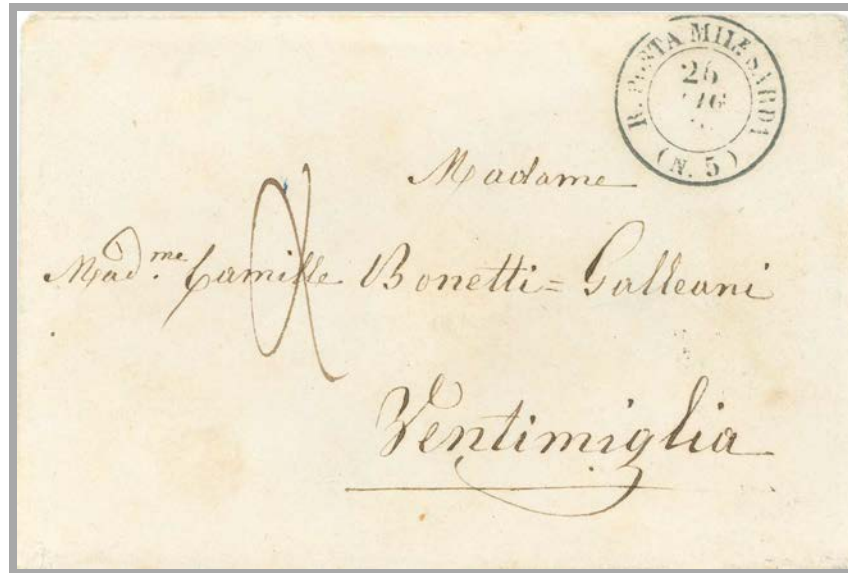 R. POSTA MILE SARDA
25
(N. 5)
Madame
Mad.me Camille Bonetti=Galleani
Ventimiglia